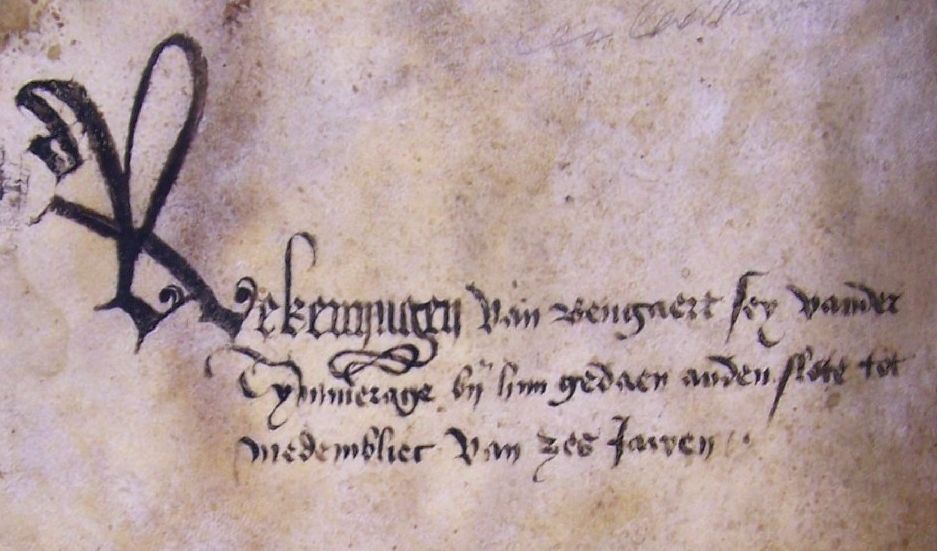 Rekeningen van wengaert sey vander
Tymmerage bij him gedaen anden slote tot
medemblict van zes Jairen